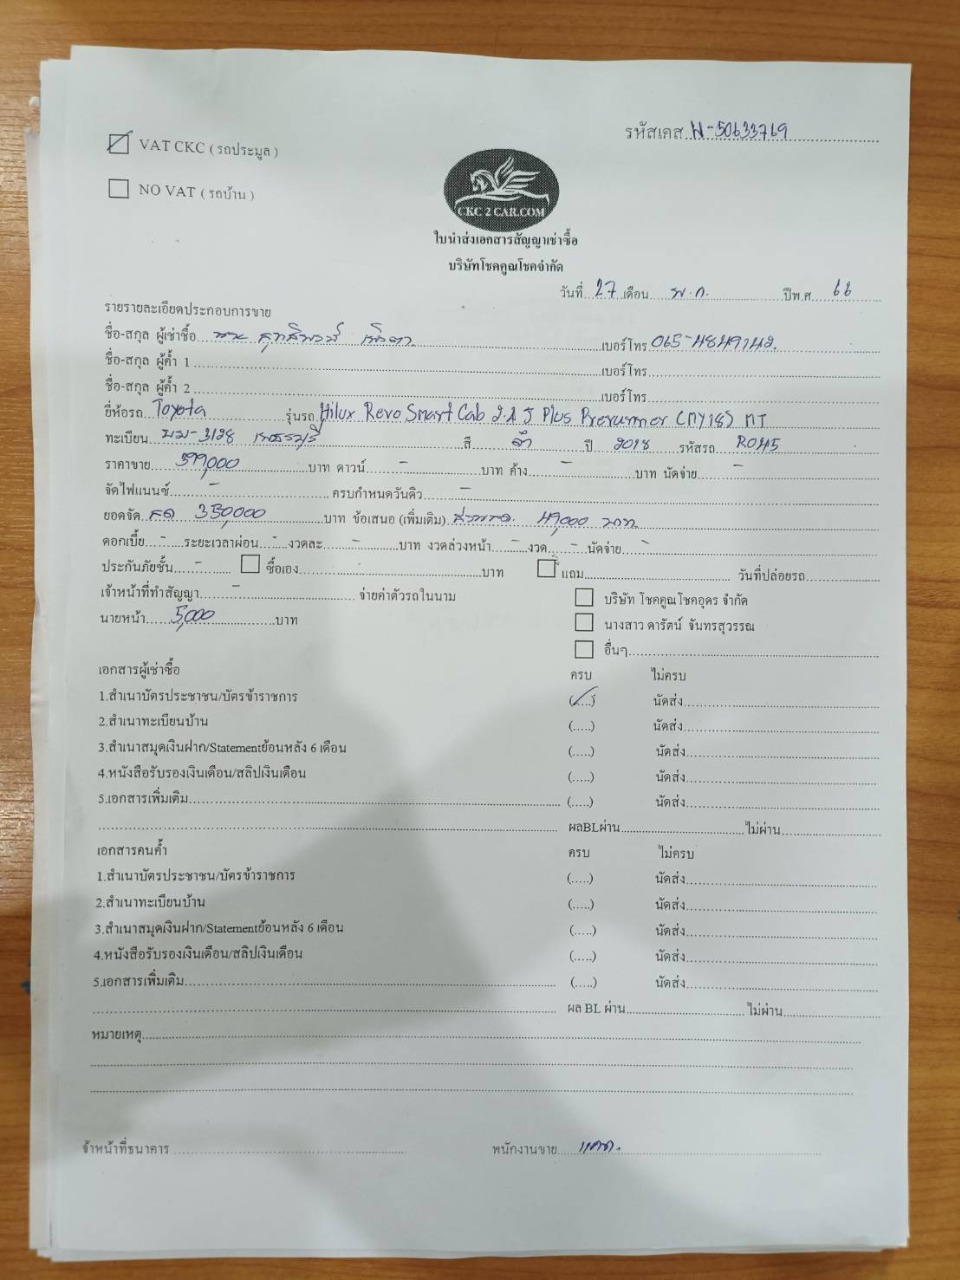 รหัสเคส N-50633769
VAT CKC ( รถประมูล )
NO VAT ( รถบ้าน )
CKC 2 CAR.COM
ใบนำส่งเอกสารสัญญาเช่าซื้อ
บริษัทโชคคูณโชคจำกัด
วันที่ 27 เดือน พ.ค. ปีพ.ศ 66
รายรายละเอียดประกอบการขาย
ชื่อ-สกุล ผู้เช่าซื้อ เบอร์โทร 065-4849142
ชื่อ-สกุล ผู้ค้ำ 1 เบอร์โทร
ชื่อ-สกุล ผู้ค้ำ 2 เบอร์โทร
ยี่ห้อรถ Toyota รุ่นรถ Hilux Revo Smart Cab 2.4 J Plus Prerunner (MY18) MT
ทะเบียน 3128 เพชรบุรี สี ดำ ปี 2018 รหัสรถ R045
ราคาขาย 399,000 บาท ดาวน์ - บาท ค้าง - บาท นัดจ่าย -
จัดไฟแนนซ์ - ครบกำหนดวันดิว -
ยอดจัด สด 350,000 บาท ข้อเสนอ (เพิ่มเติม) ส่วนลด 49,000 บาท
ดอกเบี้ย - ระยะเวลาผ่อน - งวดละ - บาท งวดล่วงหน้า - งวด - นัดจ่าย -
ประกันภัยชั้น - ซื้อเอง บาท แถม วันที่ปล่อยรถ
เจ้าหน้าที่ทำสัญญา - จ่ายค่าตัวรถในนาม
บริษัท โชคคูณโชคอุดร จำกัด
นายหน้า 5,000 บาท
นางสาว ดารัตน์ จันทรสุวรรณ
อื่นๆ
เอกสารผู้เช่าซื้อ ครบ ไม่ครบ
1.สำเนาบัตรประชาชน/บัตรข้าราชการ (.....) นัดส่ง
2.สำเนาทะเบียนบ้าน (.....) นัดส่ง
3.สำเนาสมุดเงินฝาก/Statementย้อนหลัง 6 เดือน (.....) นัดส่ง
4.หนังสือรับรองเงินเดือน/สลิปเงินเดือน (.....) นัดส่ง
5.เอกสารเพิ่มเติม (.....) นัดส่ง
ผลBLผ่าน ไม่ผ่าน
เอกสารคนค้ำ ครบ ไม่ครบ
1.สำเนาบัตรประชาชน/บัตรข้าราชการ (.....) นัดส่ง
2.สำเนาทะเบียนบ้าน (.....) นัดส่ง
3.สำเนาสมุดเงินฝาก/Statementย้อนหลัง 6 เดือน (.....) นัดส่ง
4.หนังสือรับรองเงินเดือน/สลิปเงินเดือน (.....) นัดส่ง
5.เอกสารเพิ่มเติม (.....) นัดส่ง
ผล BL ผ่าน ไม่ผ่าน
หมายเหตุ
จ้าหน้าที่ธนาคาร พนักงานขาย